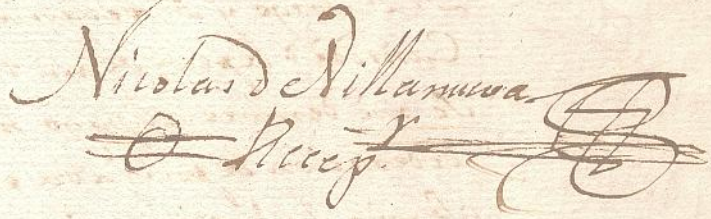 Nicolas de Villanueva
Recep.r